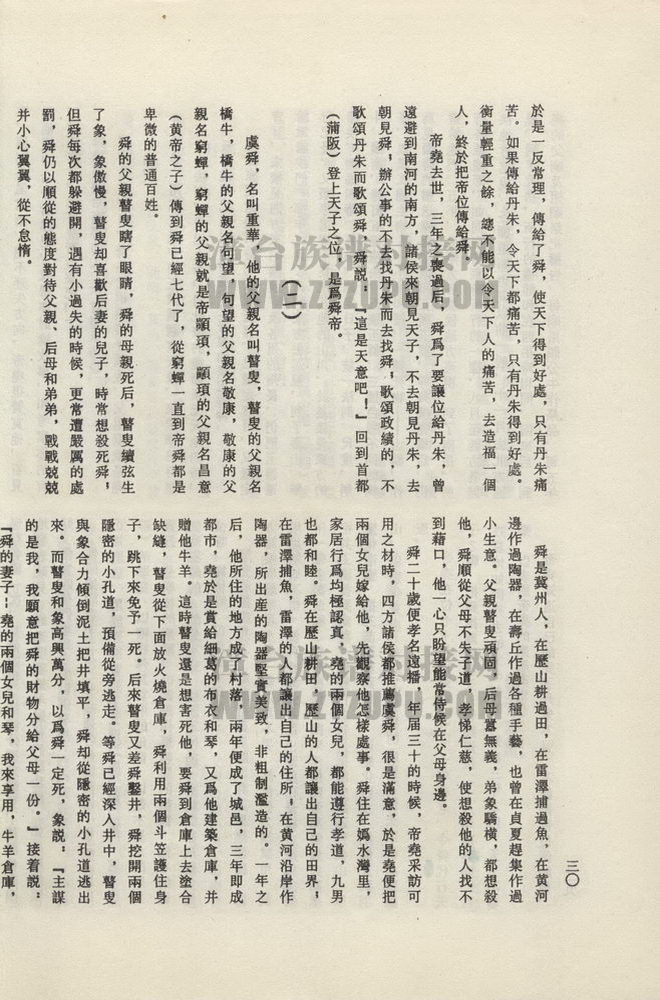 三〇
於是一反常理，傳給了舜，使天下得到好處，只有丹朱痛
苦。如果傳給丹朱，令天下都痛苦，只有丹朱得到好處。
衡量輕重之餘，總不能以令天下人的痛苦，去造福一個
人，終於把帝位傳給舜。
帝堯去世，三年之喪過后，舜爲了要讓位給丹朱，曾
遠避到南河的南方，諸侯來朝見天子，不去朝見丹朱，去
朝見舜；辦公事的不去找丹朱而去找舜；歌頌政績的，不
歌頌丹朱而歌頌舜。舜說：『這是天意吧！』回到首都
（蒲阪）登上天子之位，是爲舜帝。
（二）
虞舜，名叫重華，他的父親名叫瞽叟，瞽叟的父親名
橋牛，橋牛的父親名句望，句望的父親名敬康，敬康的父
親名窮蟬，窮蟬的父親就是帝顓項，顓項的父親名昌意
（黃帝之子）傳到舜已經七代了，從窮蟬一直到帝舜都是
卑微的普通百姓。
舜的父親瞽叟瞎了眼睛，舜的母親死后，瞽叟續弦生
了象，象傲慢，瞽叟却喜歡后妻的兒子，時常想殺死舜；
但舜每次都躲避開，遇有小過失的時候，更常遭嚴厲的處
罰，舜仍以順從的態度對待父親、后母和弟弟，戰戰兢兢
并小心翼翼，從不怠惰。
舜是冀州人，在歷山耕過田，在雷澤捕過魚，在黃河
邊作過陶器，在壽丘作過各種手藝，也曾在貞夏趕集作過
小生意。父親瞽叟頑固，后母囂無義，弟象驕橫，都想殺
他，舜順從父母不失子道，孝悌仁慈，使想殺他的人找不
到藉口，他一心只盼望能常侍候在父母身邊。
舜二十歲便孝名遠播，年届三十的時候，帝堯采訪可
用之材時，四方諸侯都推薦虞舜，很是滿意，於是堯便把
兩個女兒嫁給他，先觀察他怎樣處事。舜住在嬀水灣里，
家居行爲均極認真，堯的兩個女兒，都能遵行孝道，九男
也都和睦。舜在歷山耕田，歷山的人都讓出自己的田界；
在雷澤捕魚，雷澤的人都讓出自己的住所；在黃河沿岸作
陶器，所出産的陶器堅實美致，非粗制濫造的。一年之
后，他所住的地方成了村落，兩年便成了城邑，三年即成
都市，堯於是賞給細葛的布衣和琴，又爲他建築倉庫，并
贈他牛羊。這時瞽叟還是想害死他，要舜到倉庫上去塗合
缺縫，瞽叟從下面放火燒倉庫，舜利用兩個斗笠護住身
子，跳下來免予一死。后來瞽叟又差舜鑿井，舜挖開兩個
隱密的小孔道，預備從旁逃走。等舜已經深入井中，瞽叟
與象合力傾倒泥土把井填平，舜却從隱密的小孔道逃出
來。而瞽叟和象高興萬分，以爲舜一定死，象説：『主謀
的是我，我願意把舜的財物分給父母一份。』接着説：
『舜的妻子：堯的兩個女兒和琴，我來享用，牛羊倉庫，
漳台族譜对接网
WWW.ZTZUPU.COM
漳台族譜对接网
WWW.ZTZUPU.COM